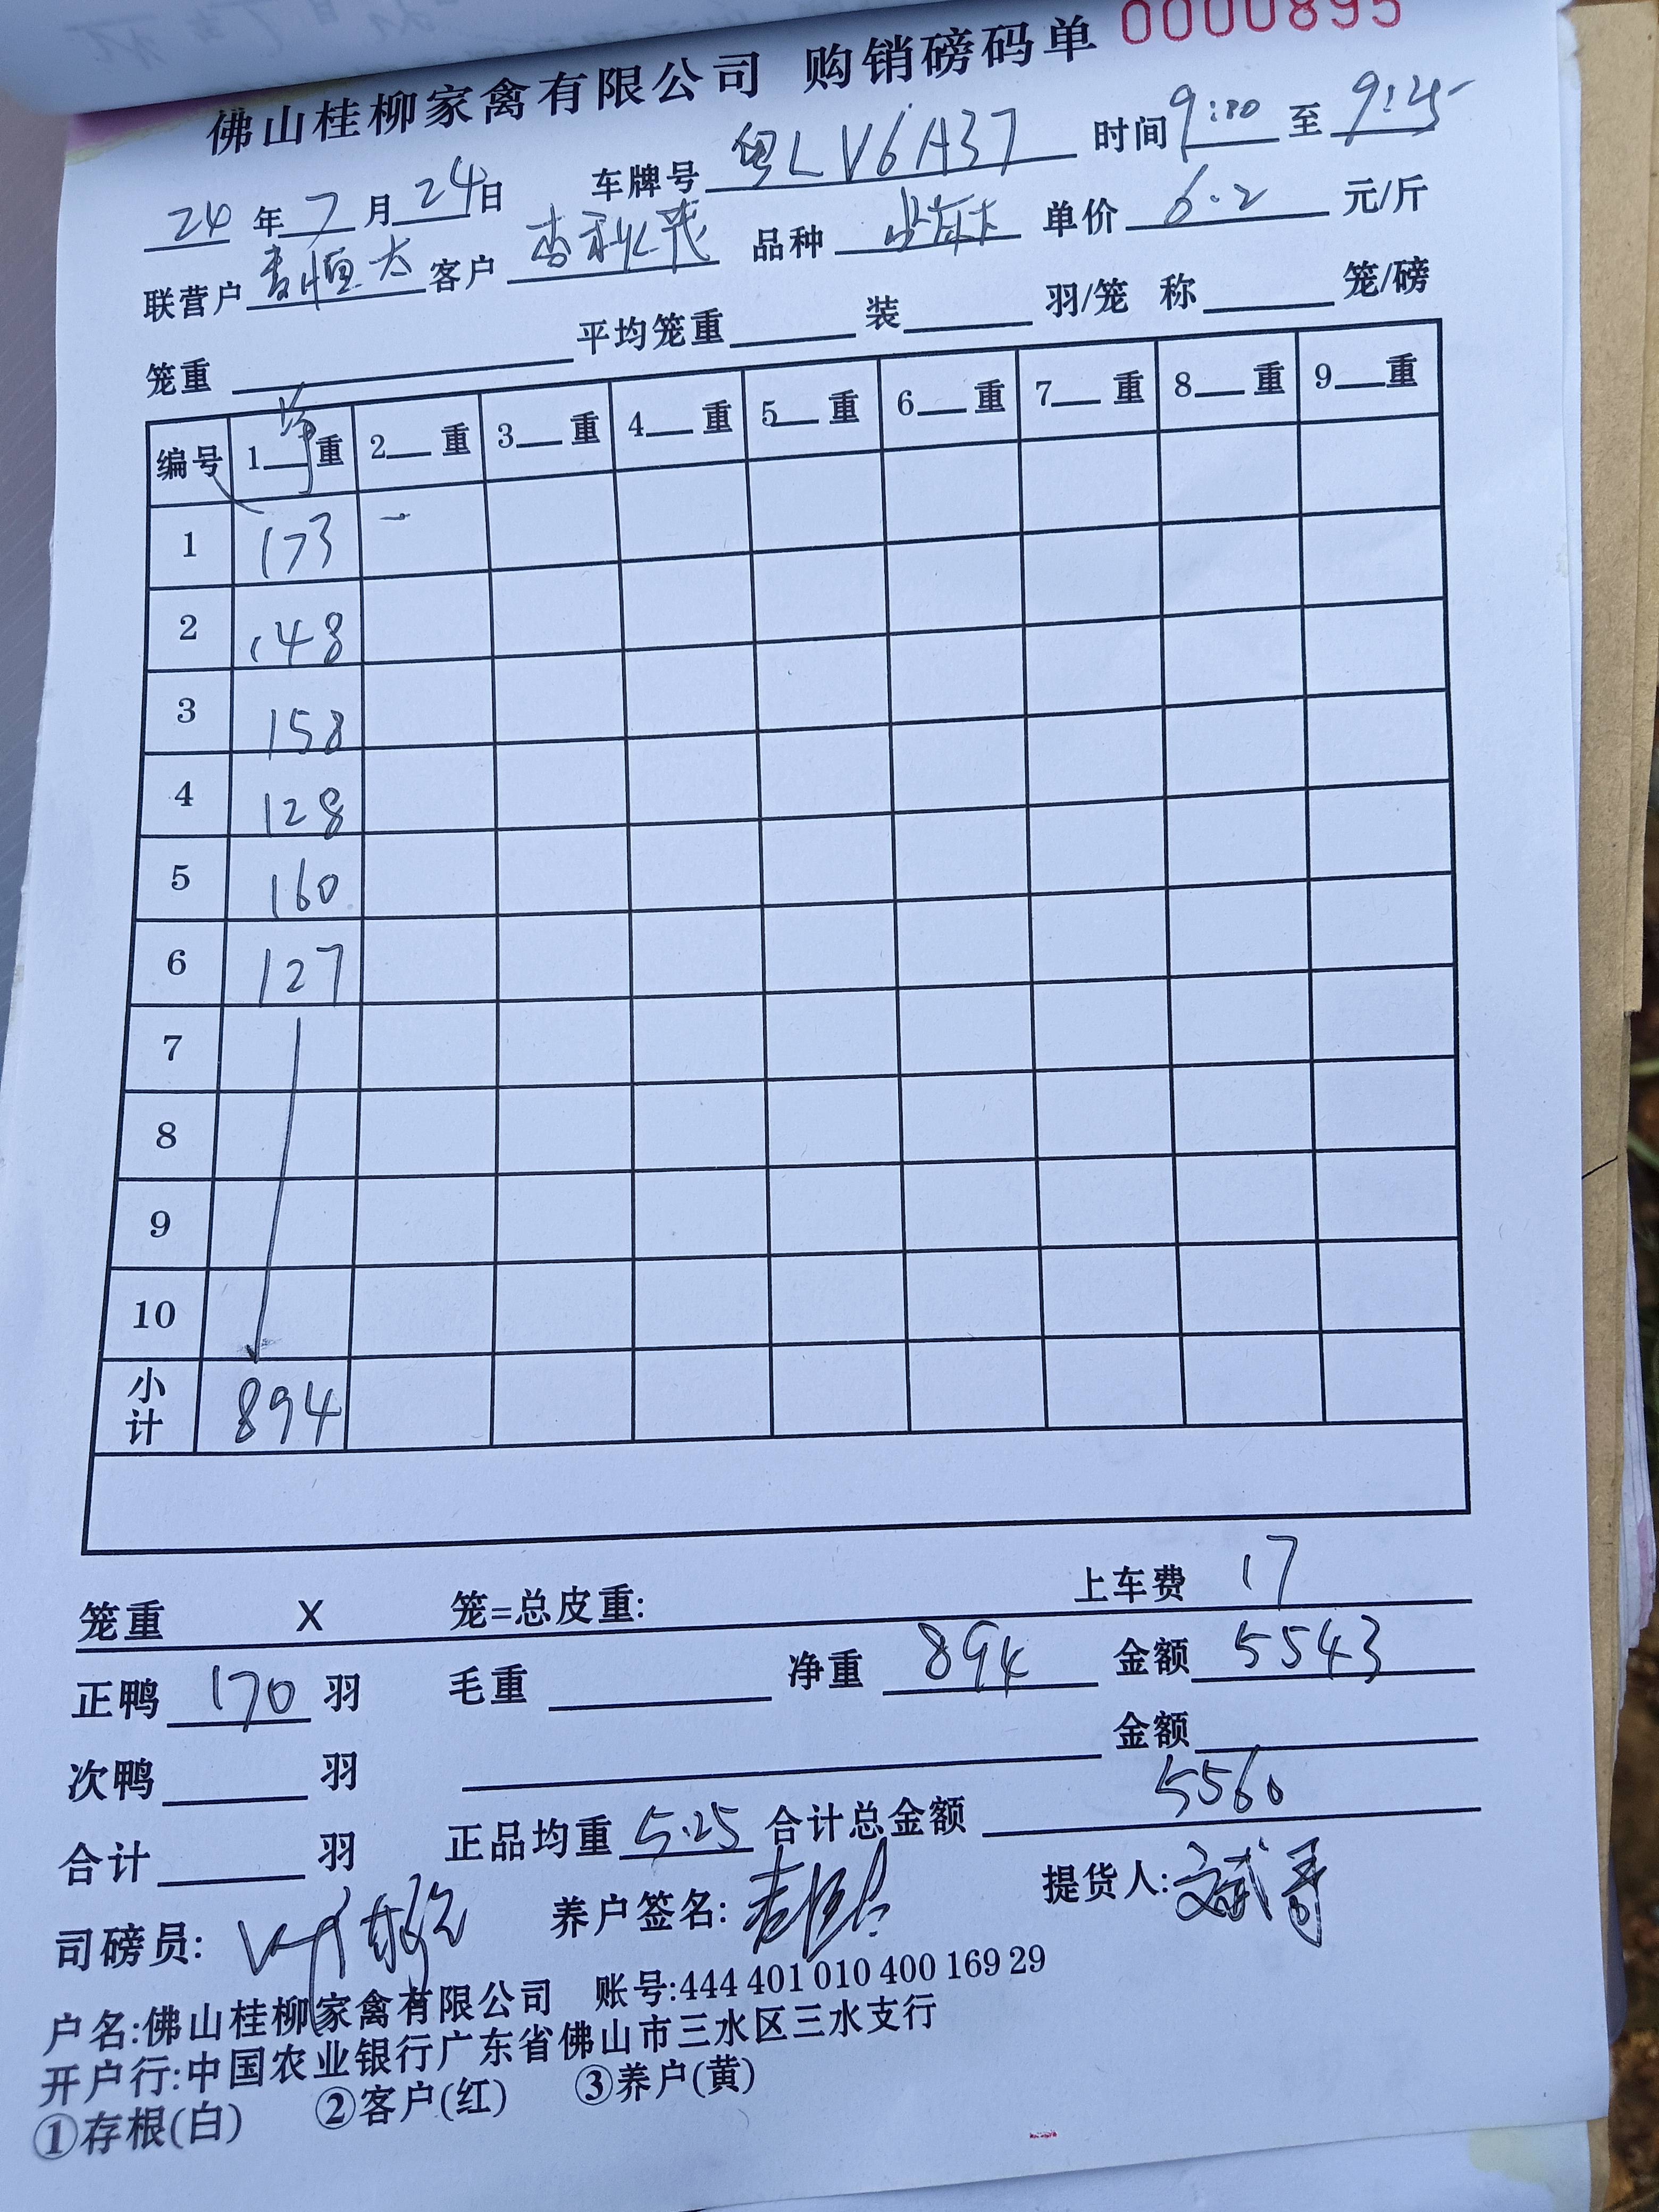 0000895
佛山桂柳家禽有限公司 购销磅码单
24年7月24日 车牌号 粤LV6A37 时间 9:00 至 9:25
联营户 恒 客户 李秋茂 品种 单价 6.2 元/斤
笼重 平均笼重 装 羽/笼 称 笼/磅
编号 1净重 2 重 3 重 4 重 5 重 6 重 7 重 8 重 9 重
1 173
2 148
3 158
4 128
5 160
6 127
7
8
9
10
小计 894
笼重 X 笼=总皮重: 上车费 17
正鸭 170 羽 毛重 净重 894 金额 5543
次鸭 羽 金额
合计 羽 正品均重 5.25 合计总金额 5560
司磅员: 养户签名: 提货人: 文武哥
户名:佛山桂柳家禽有限公司 账号:444 401 010 400 169 29
开户行:中国农业银行广东省佛山市三水区三水支行
①存根(白) ②客户(红) ③养户(黄)